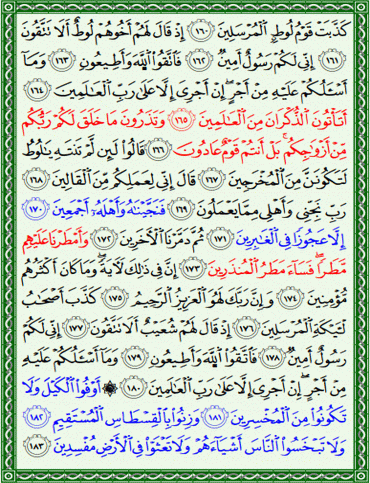 كَذَّبَتْ قَوْمُ لُوطٍ ٱلْمُرْسَلِينَ ١٦٠ إِذْ قَالَ لَهُمْ أَخُوهُمْ لُوطٌ أَلَا تَتَّقُونَ
١٦١ إِنِّي لَكُمْ رَسُولٌ أَمِينٌ ١٦٢ فَٱتَّقُوا۟ ٱللَّهَ وَأَطِيعُونِ ١٦٣ وَمَآ
أَسْـَٔلُكُمْ عَلَيْهِ مِنْ أَجْرٍ ۖ إِنْ أَجْرِيَ إِلَّا عَلَىٰ رَبِّ ٱلْعَـٰلَمِينَ ١٦٤
أَتَأْتُونَ ٱلذُّكْرَانَ مِنَ ٱلْعَـٰلَمِينَ ١٦٥ وَتَذَرُونَ مَا خَلَقَ لَكُمْ رَبُّكُم
مِّنْ أَزْوَٰجِكُم ۚ بَلْ أَنتُمْ قَوْمٌ عَادُونَ ١٦٦ قَالُوا۟ لَئِن لَّمْ تَنتَهِ يَـٰلُوطُ
لَتَكُونَنَّ مِنَ ٱلْمُخْرَجِينَ ١٦٧ قَالَ إِنِّي لِعَمَلِكُم مِّنَ ٱلْقَالِينَ ١٦٨
رَبِّ نَجِّنِي وَأَهْلِي مِمَّا يَعْمَلُونَ ١٦٩ فَنَجَّيْنَـٰهُ وَأَهْلَهُۥٓ أَجْمَعِينَ ١٧٠
إِلَّا عَجُوزًا فِي ٱلْغَـٰبِرِينَ ١٧١ ثُمَّ دَمَّرْنَا ٱلْـَٔاخَرِينَ ١٧٢ وَأَمْطَرْنَا عَلَيْهِم
مَّطَرًا ۖ فَسَآءَ مَطَرُ ٱلْمُنذَرِينَ ١٧٣ إِنَّ فِي ذَٰلِكَ لَـَٔايَةً ۖ وَمَا كَانَ أَكْثَرُهُم
مُّؤْمِنِينَ ١٧٤ وَإِنَّ رَبَّكَ لَهُوَ ٱلْعَزِيزُ ٱلرَّحِيمُ ١٧٥ كَذَّبَ أَصْحَـٰبُ
لْـَٔيْكَةِ ٱلْمُرْسَلِينَ ١٧٦ إِذْ قَالَ لَهُمْ شُعَيْبٌ أَلَا تَتَّقُونَ ١٧٧ إِنِّي لَكُمْ
رَسُولٌ أَمِينٌ ١٧٨ فَٱتَّقُوا۟ ٱللَّهَ وَأَطِيعُونِ ١٧٩ وَمَآ أَسْـَٔلُكُمْ عَلَيْهِ
مِنْ أَجْرٍ ۖ إِنْ أَجْرِيَ إِلَّا عَلَىٰ رَبِّ ٱلْعَـٰلَمِينَ ١٨٠ ۞ أَوْفُوا۟ ٱلْكَيْلَ وَلَا
تَكُونُوا۟ مِنَ ٱلْمُخْسِرِينَ ١٨١ وَزِنُوا۟ بِٱلْقِسْطَاسِ ٱلْمُسْتَقِيمِ ١٨٢
وَلَا تَبْخَسُوا۟ ٱلنَّاسَ أَشْيَآءَهُمْ وَلَا تَعْثَوْا۟ فِي ٱلْأَرْضِ مُفْسِدِينَ ١٨٣